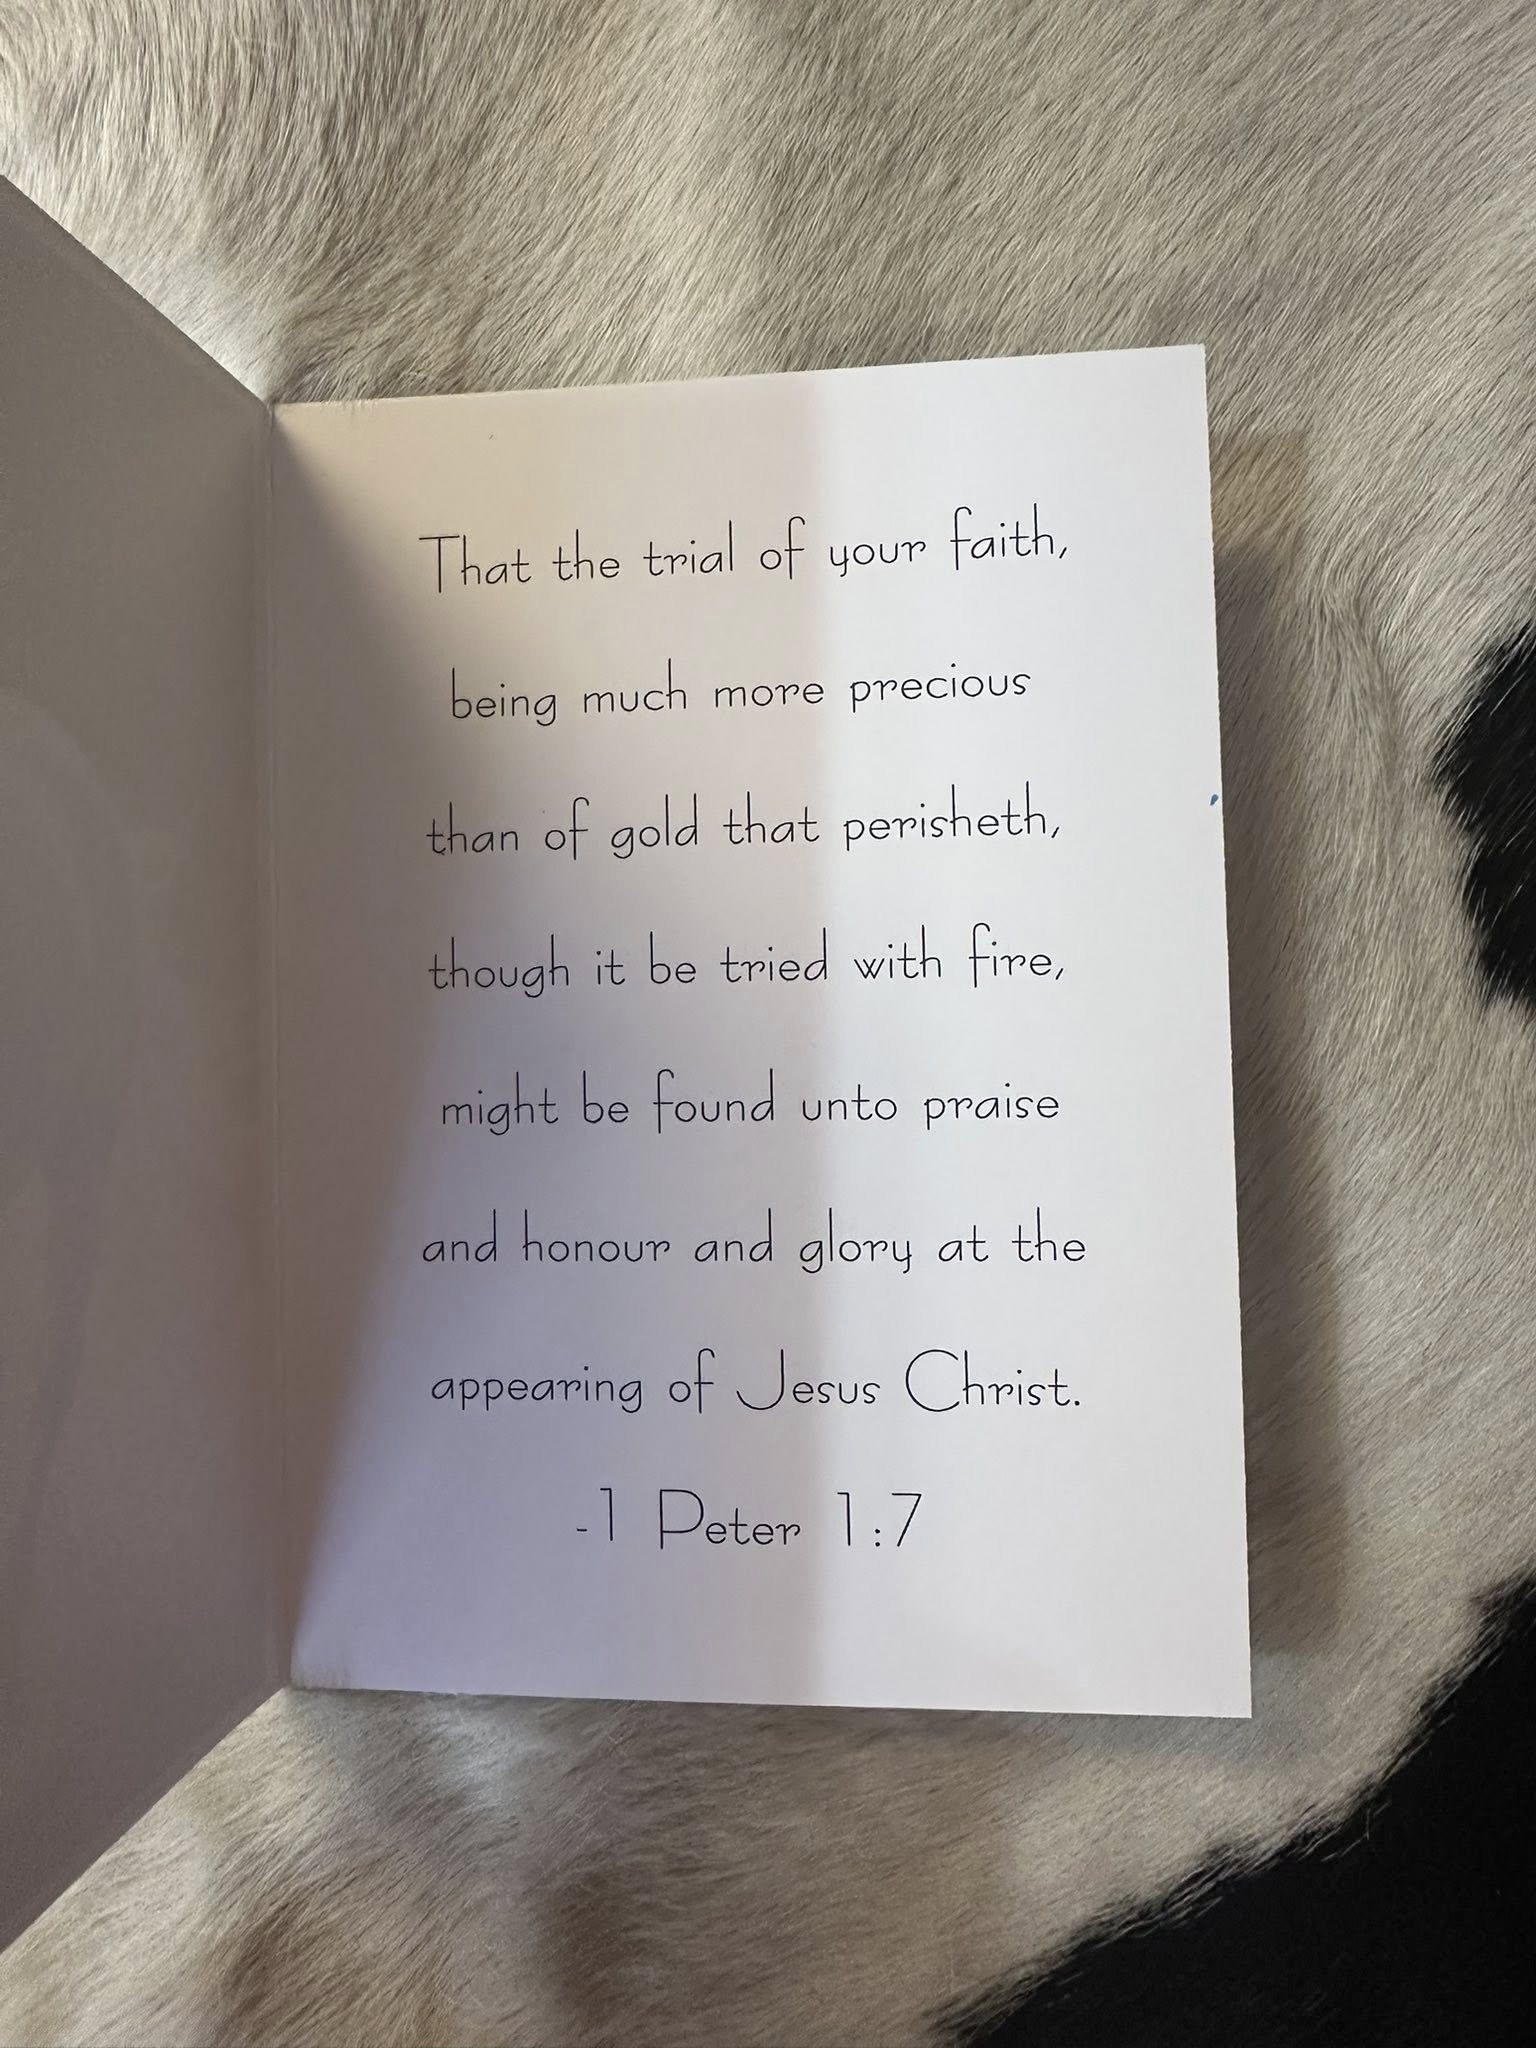 That the trial of your faith,
being much more precious
than of gold that perisheth,
though it be tried with fire,
might be found unto praise
and honour and glory at the
appearing of Jesus Christ.
-1 Peter 1:7